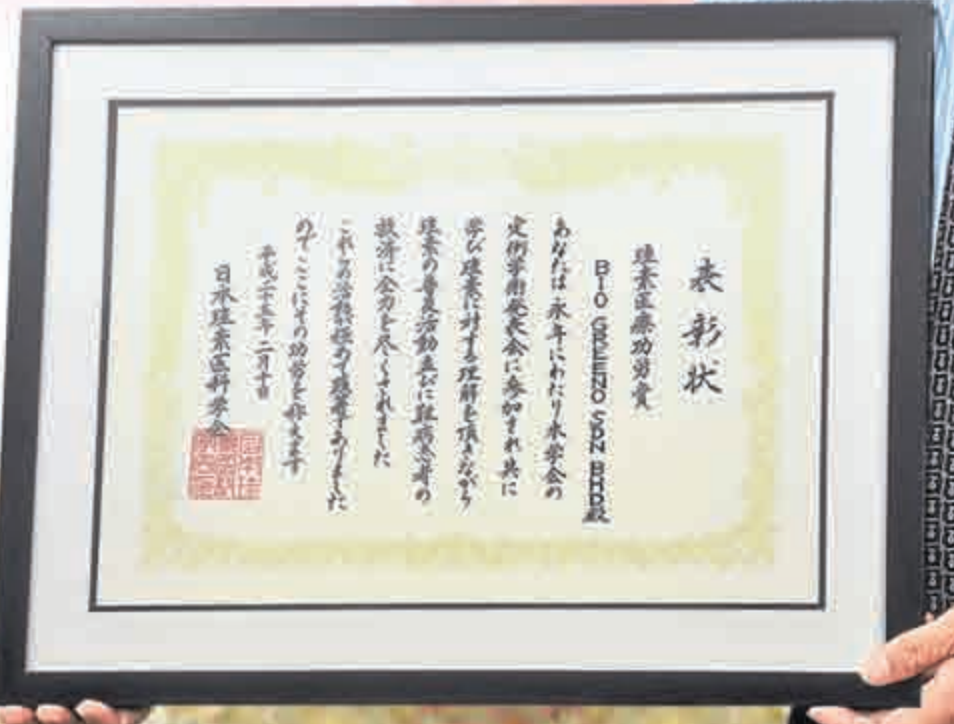 表彰状
珪素医療功労賞
BIO GREENO SDN BHD殿
あなたは永年にわたり本学会の
定例学術発表会に参加され共に
学び珪素に対する理解を頂きながら
珪素の普及活動並びに難病患者の
救済に全力を尽くされました
これらの活動極めて顕著でありました
のでここにその功労を称えます
平成二十五年二月十日
日本珪素医科学会